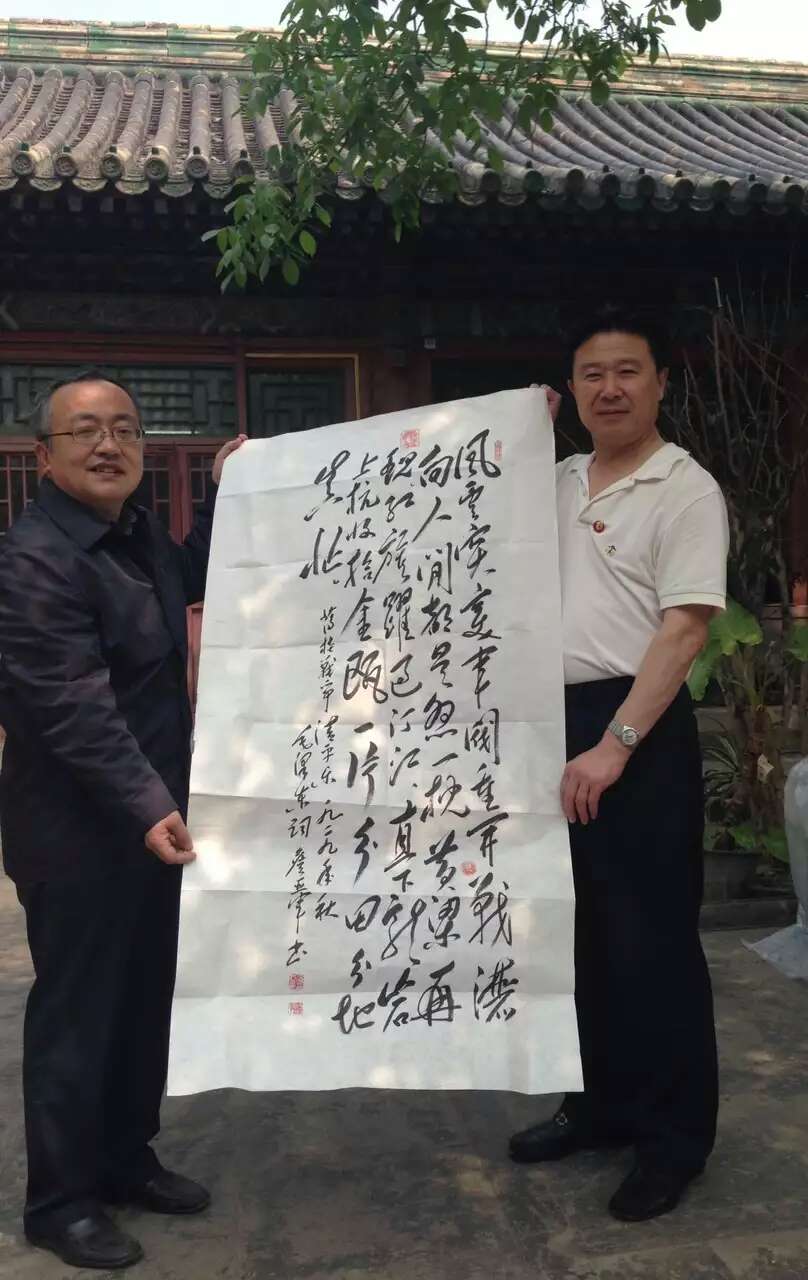 風云突变軍閥重开戰灑
向人间都是怨一枕黄粱再
现红旗躍过汀江直下龍岩
上杭收拾金瓯一片分田分地
真忙
蒋桂战争 清平乐 一九二九年秋
毛泽东词 书